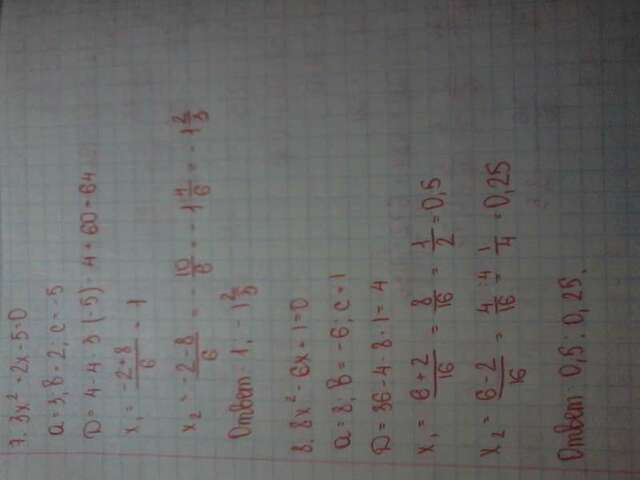 7. 3x² + 2x - 5 = 0
a = 3, b = 2; c = -5
D = 4 - 4 · 3 (-5) = 4 + 60 = 64
x₁ = -2+8/6 = 1
x₂ = -2-8/6 = - 10/6 = -1 4/6 = -1 2/3
Ответ: 1; -1 2/3
8. 8x² - 6x + 1 = 0
a = 8; b = -6; c = 1
D = 36 - 4 · 8 · 1 = 4
x₁ = 6+2/16 = 8/16 = 1/2 = 0,5
x₂ = 6-2/16 = 4/16 :4 = 1/4 = 0,25
Ответ: 0,5; 0,25.